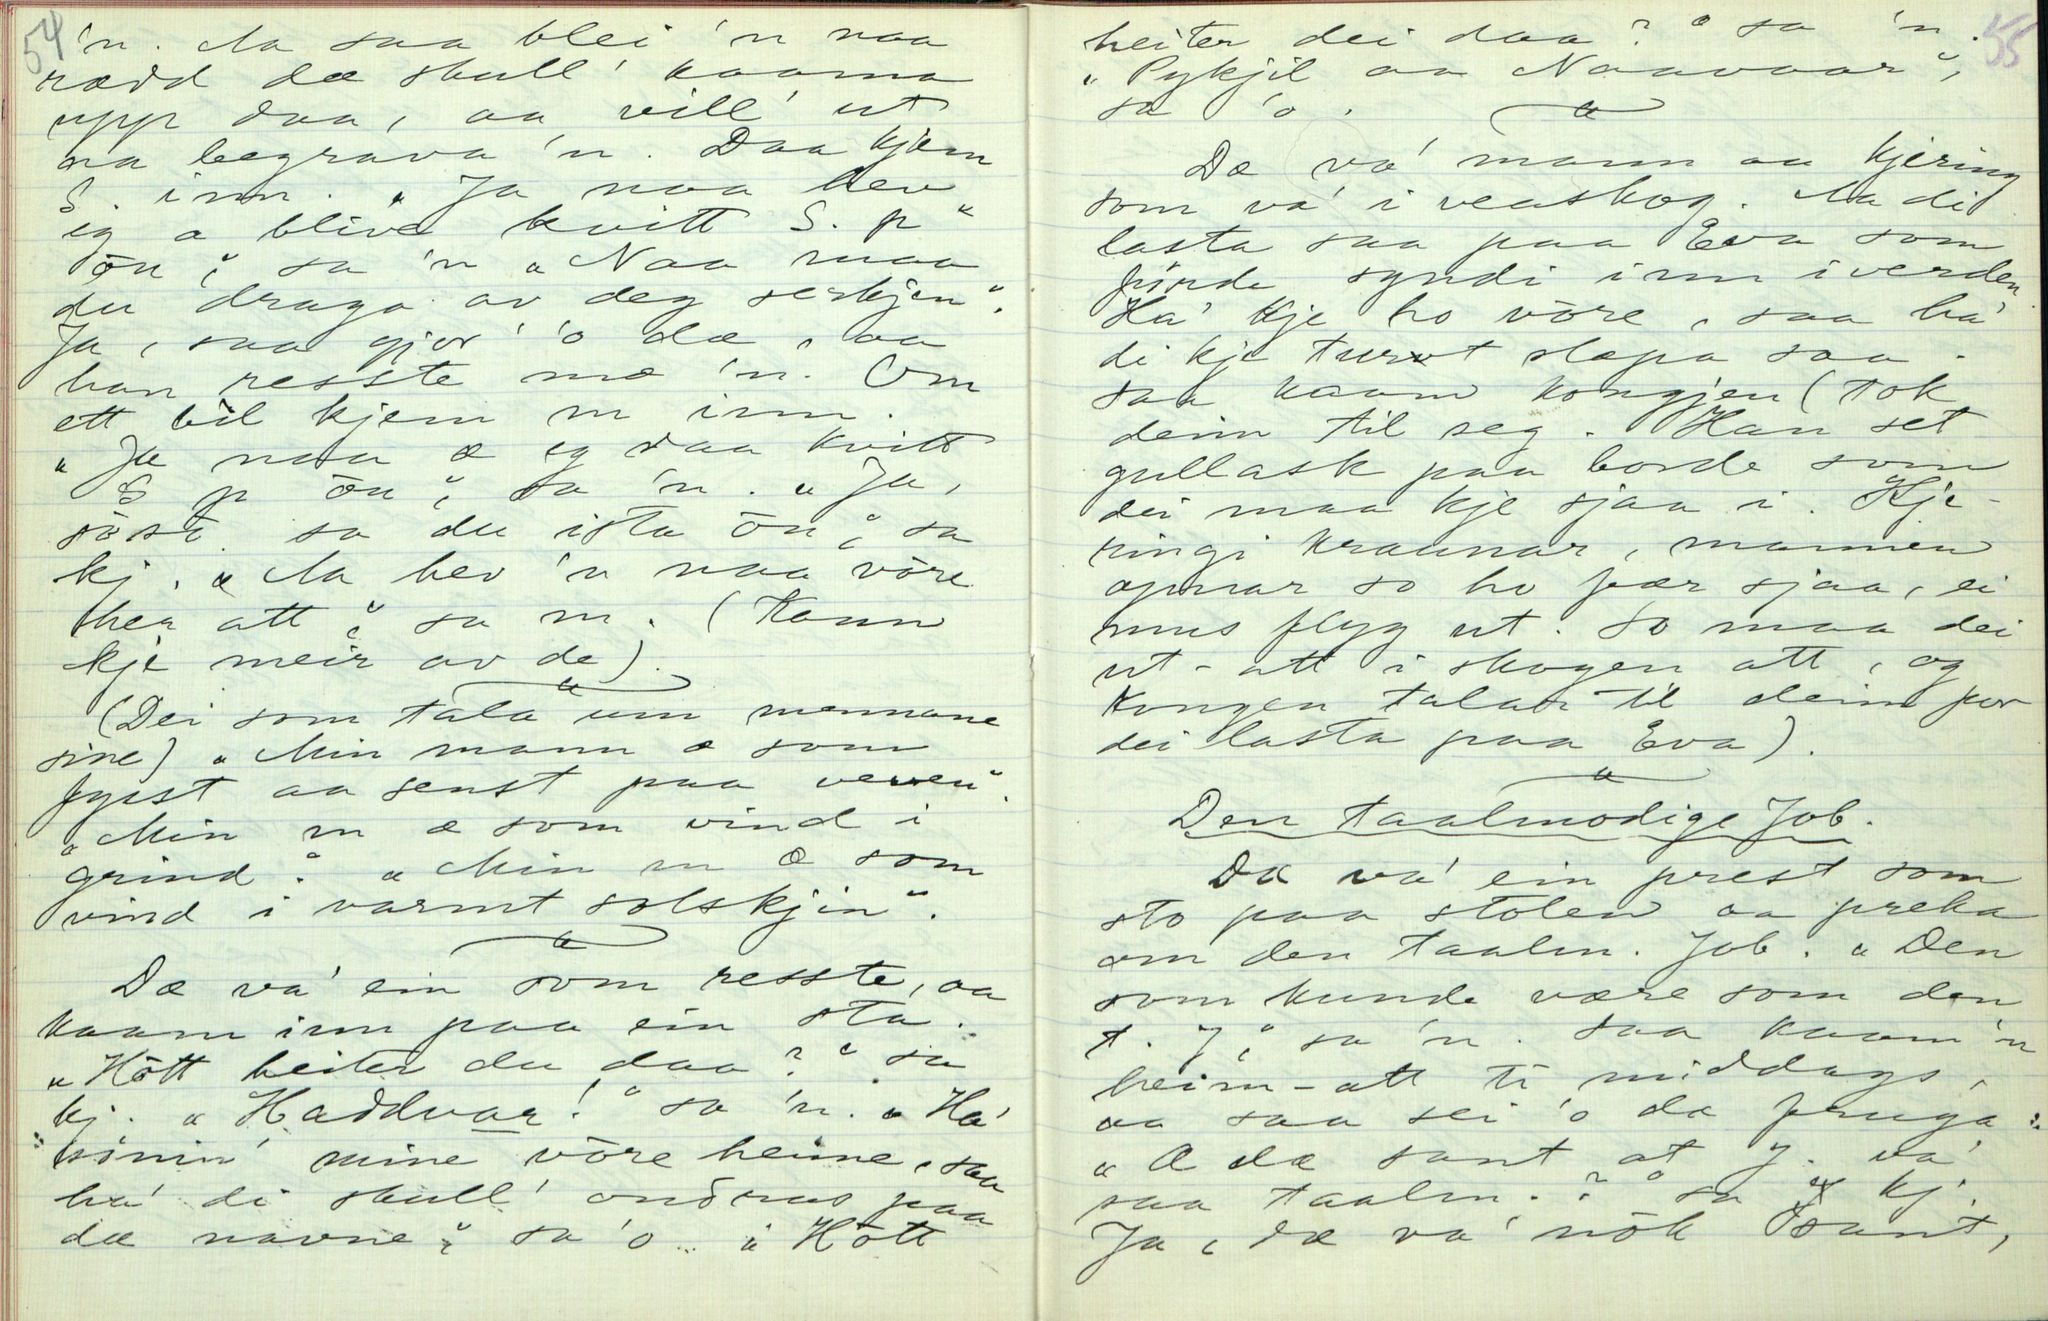 54
'n. Aa saa blei 'n naa
rædd dæ skull' kaama
upp daa, aa vill' ut
aa begrava 'n. Daa kjem
S. inn. „Ja naa hev
eg a blive kvitt S. p
ōn", sa 'n „Naa maa
du draga av deg serkjen".
Ja, saa gjor' 'o dæ, aa
han resste mæ 'n. Om
ett bil kjem m inn.
„Ja naa æ eg daa kvitt
S p ōn", sa 'n. „Ja,
söst sa du ista ōn", sa
kj. „Aa hev 'n naa vöre
her att", sa m. (Kann
kje meir av de).
(Dei som tala um mennane
sine) „Min mann æ som
fyist aa senst paa veven".
„Min m æ som vind i
grind". „Min m æ som
vind i varmt solskjin".
Dæ va' ein som resste, aa
kaam inn paa ein sta.
„Hött heiter du daa?" sa
kj. „Haddvar!" sa 'n. „Ha'
sönin' mine vöre heime, saa
ha' di skull' ondras paa
dæ navne", sa 'o. „Hött
55
heiter dei daa?" sa 'n.
„Pykjil aa Naavaar",
sa 'o.
Dæ va' mann aa kjering
som va' i veaskog. Aa di
lasta saa paa Eva som
förde syndi inn i verden.
Ha' kje ho vöre, saa ha'
di kje turvt slæpa saa.
Saa kaam kongjen (tok
deim til seg. Han set
gullask paa borde som
dei maa kje sjaa i. Kje-
ringi kraunar, mannen
opnar so ho fær sjaa, ei
mus flyg ut. So maa dei
ut-att i skogen att, og
kongen talar til deim for
dei lasta paa Eva).
Den taalmodige Job.
Dæ va' ein prest som
sto paa stolen aa preka
om den taalm. Job. „Den
som kunde være som den
t. J", sa 'n. Saa kaam 'n
heim-att ti middags,
aa saa sei 'o da fruga:
„Æ dæ sant at J. va'
saa taalm.?" sa kj.
Ja, dæ va' nök sant,